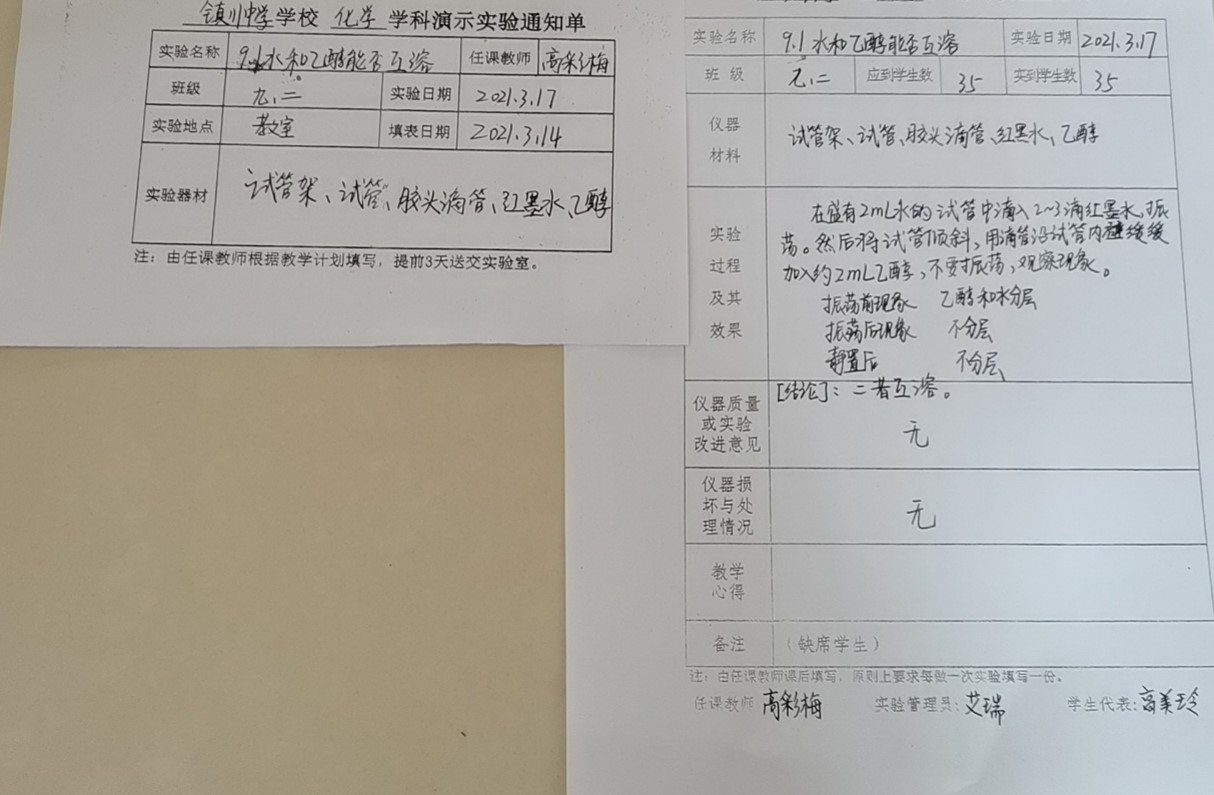 镇川中学学校 化学 学科演示实验通知单
实验名称 9.1水和乙醇能否互溶 任课教师 高彩梅
班级 九、二 实验日期 2021.3.17
实验地点 教室 填表日期 2021.3.14
实验器材 试管架、试管、胶头滴管、红墨水、乙醇
注：由任课教师根据教学计划填写，提前3天送交实验室。
实验名称 9.1水和乙醇能否互溶 实验日期 2021.3.17
班 级 九、二 应到学生数 35 实到学生数 35
仪器
材料
试管架、试管、胶头滴管、红墨水、乙醇
实验
过程
及其
效果
在盛有2mL水的试管中滴入2~3滴红墨水，振
荡。然后将试管倾斜，用滴管沿试管内壁缓缓
加入约2mL乙醇，不要振荡，观察现象。
振荡前现象 乙醇和水分层
振荡后现象 不分层
静置后 不分层
[结论]：二者互溶。
仪器质量
或实验
改进意见
无
仪器损
坏与处
理情况
无
教学
心得
备注 （缺席学生）
注：由任课教师课后填写，原则上要求每做一次实验填写一份。
任课教师 高彩梅 实验管理员：艾瑞 学生代表：高美玲